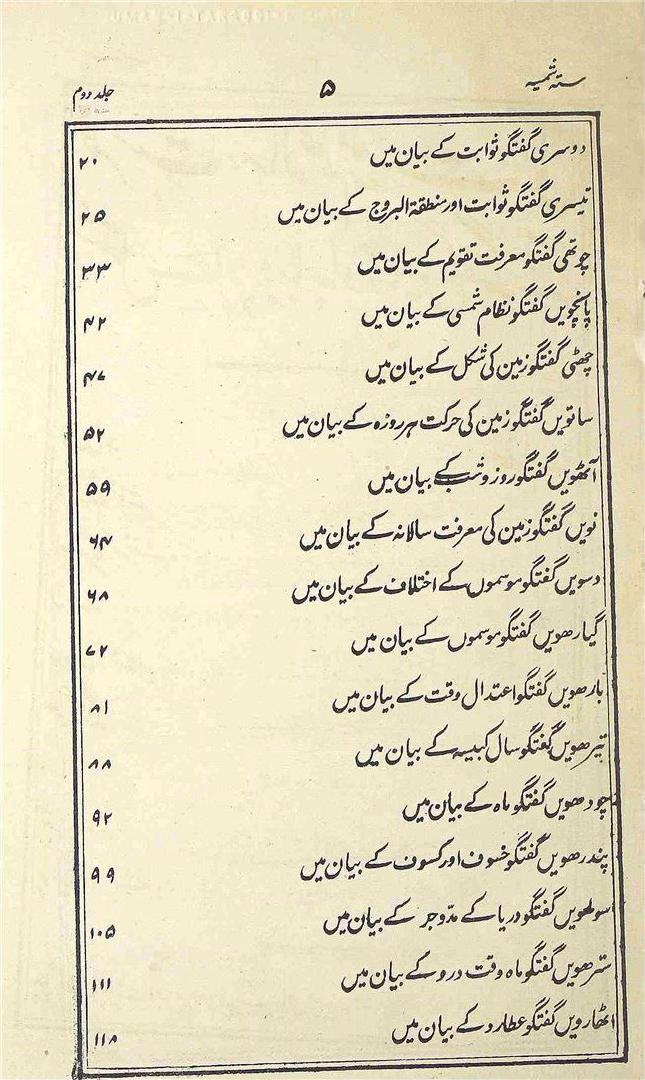 ستہ شمسیہ ۵ جلد دوم
دوسری گفتگو ثوابت کے بیان میں ۲۰
تیسری گفتگو ثوابت اور منطقۃ البروج کے بیان میں ۲۵
چوتھی گفتگو معرفت تقویم کے بیان میں ۳۳
پانچویں گفتگو نظام شمسی کے بیان میں ۴۲
چھٹی گفتگو زمین کی شکل کے بیان میں ۴۷
ساتویں گفتگو زمین کی حرکت ہر روزہ کے بیان میں ۵۲
آٹھویں گفتگو روز و شب کے بیان میں ۵۹
نویں گفتگو زمین کی معرفت سالانہ کے بیان میں ۶۴
دسویں گفتگو موسموں کے اختلاف کے بیان میں ۶۸
گیارھویں گفتگو موسموں کے بیان میں ۷۲
بارھویں گفتگو اعتدال وقت کے بیان میں ۸۱
تیرھویں گفتگو سال کبیسہ کے بیان میں ۸۸
چودھویں گفتگو ماہ کے بیان میں ۹۲
پندرھویں گفتگو خسوف اور کسوف کے بیان میں ۹۹
سولھویں گفتگو دریا کے مدّ و جزر کے بیان میں ۱۰۵
سترھویں گفتگو ماہ وقت درو کے بیان میں ۱۱۱
اٹھارویں گفتگو عطارد کے بیان میں ۱۱۸